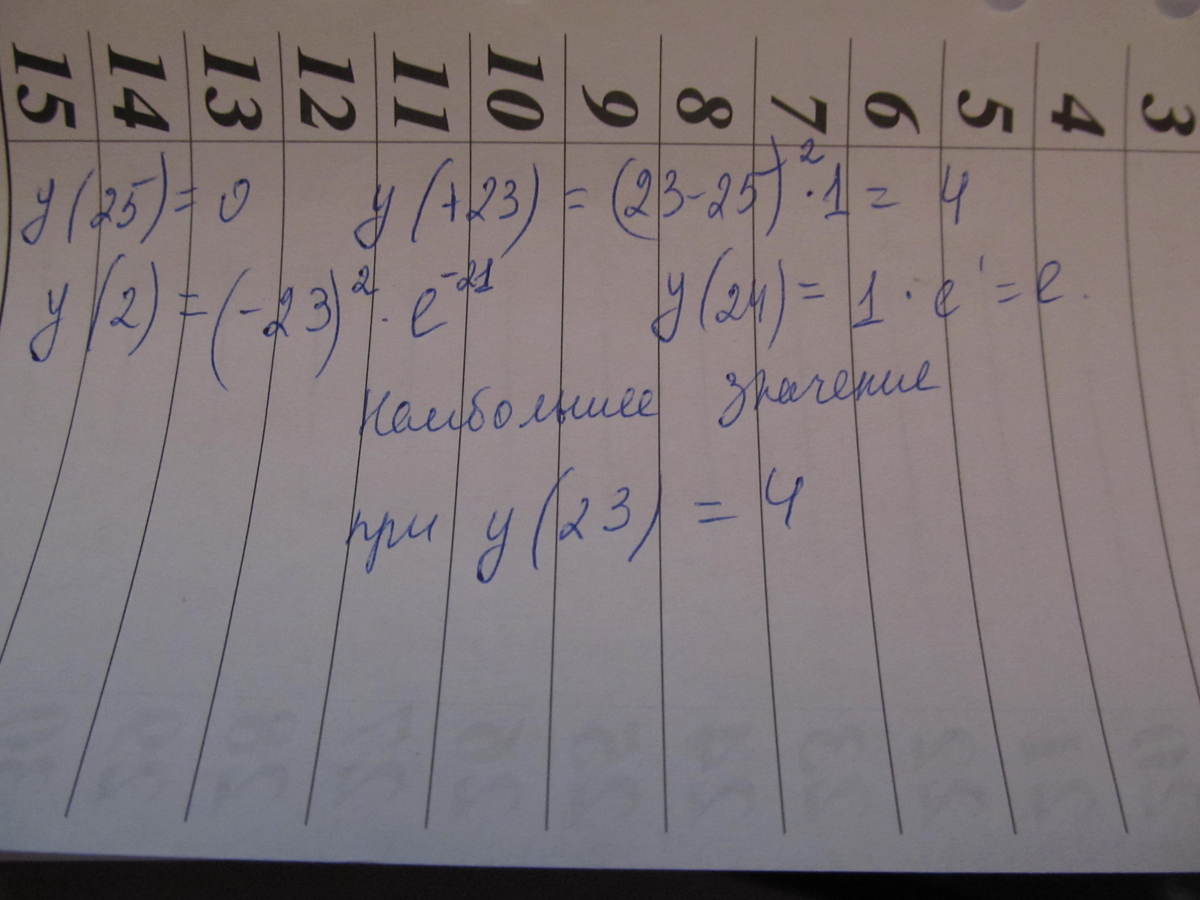 15 14 13 12 11 10 9 8 7 6 5 4 3
y(25) = 0 y(+23) = (23-25)² · 1 = 4
y(2) = (-23)² · e⁻²¹ y(24) = 1 · e¹ = e.
Наибольшее значение
при y(23) = 4